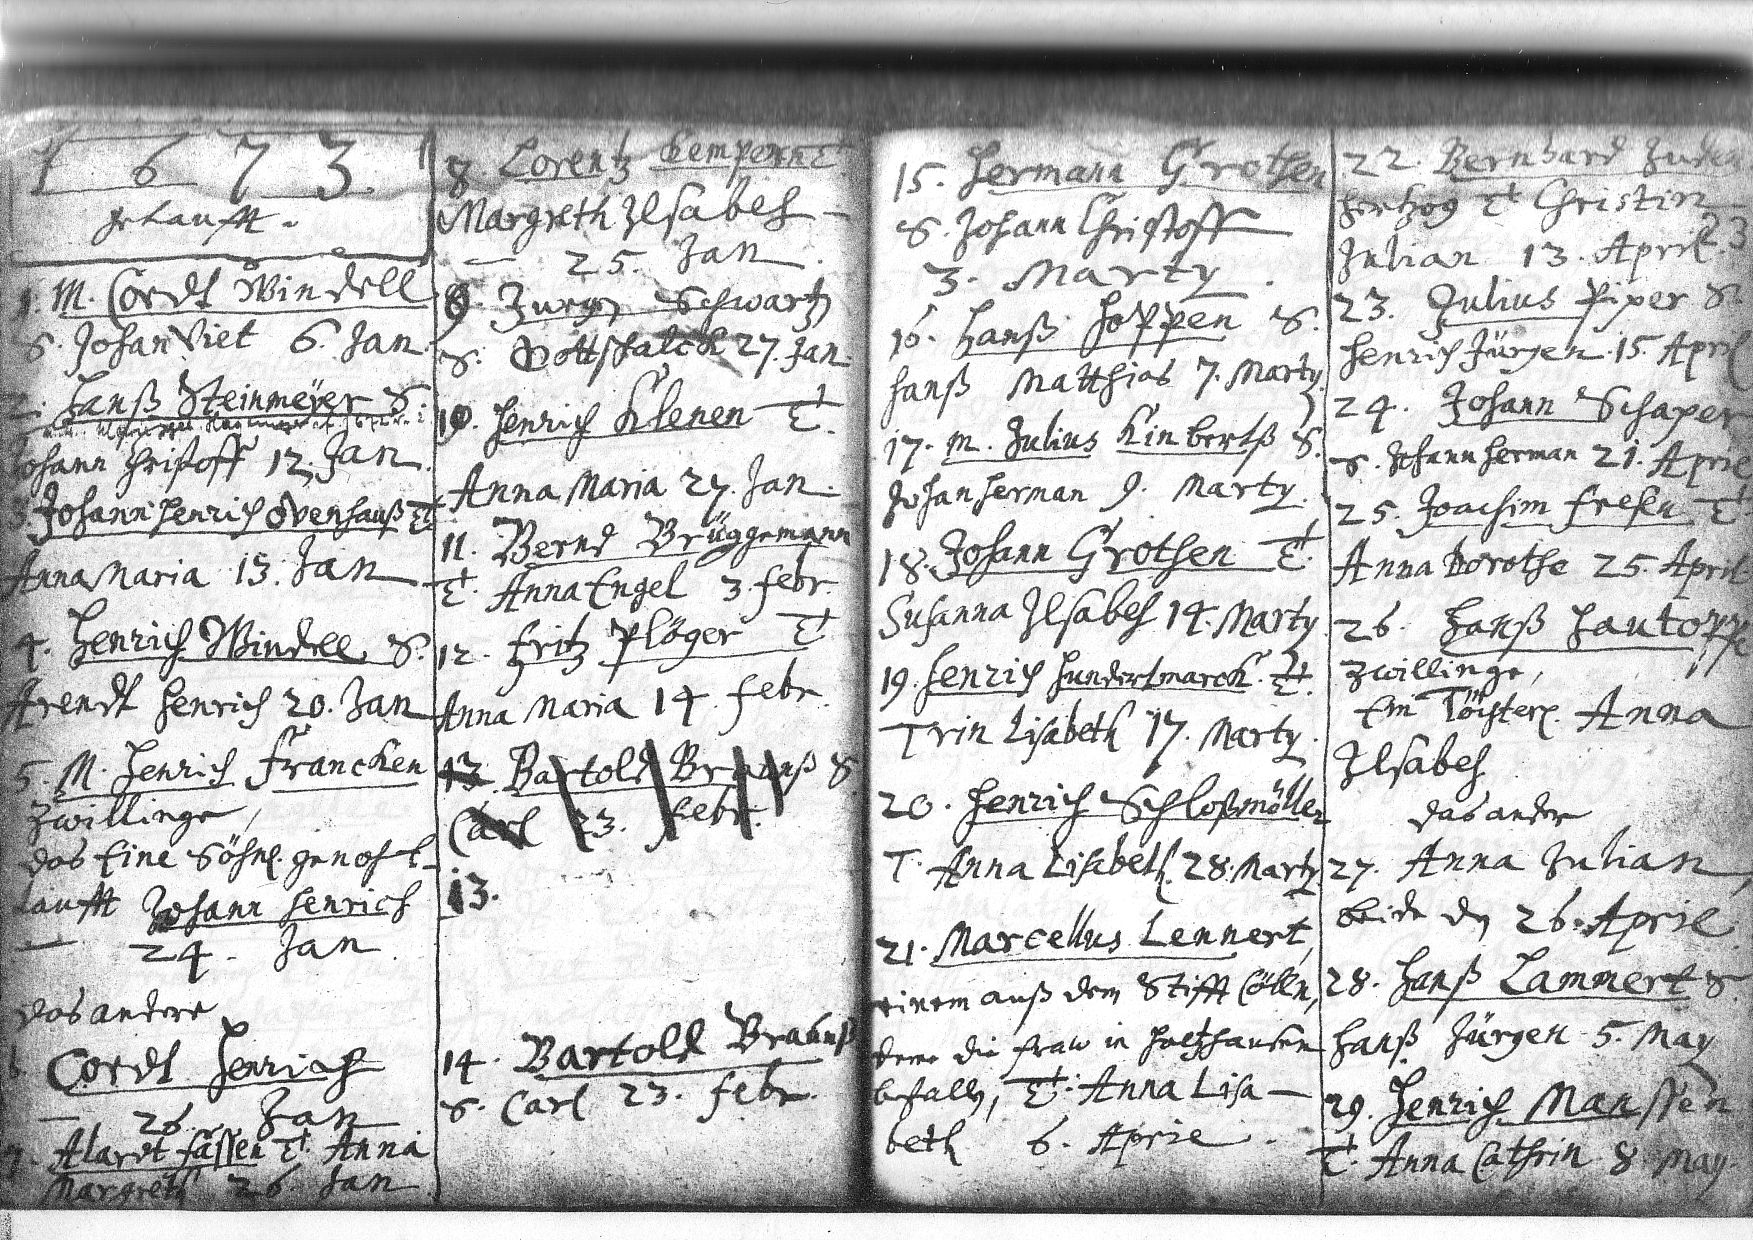 1673
getaufft.
1. M. Cordt Windell
S. Johan Viet 6. Jan.
2. Hanß Steinmeÿer S.
Johann Christoff 12. Jan.
3. Johann Henrich Ovenhauß T.
Anna Maria 13. Jan
4. Henrich Windell S.
Arendt Henrich 20. Jan
5. M. Henrich Francken
Zwillinge,
das Eine Söhnl.
taufft Johann Henrich
24. Jan.
das andere
6. Cordt Henrich
26. Jan
7. Alardt Fassen T. Anna
Margreth 26 Jan
8. Lorentz Kempern T.
Margreth Ilsabeh
25. Jan.
9. Jurgen Schwartz
S. Gottschalck 27. Jan
10. Henrich Klenen T.
Anna Maria 27. Jan.
11. Bernd Brüggemann
T. Anna Engel 3. Febr.
12. Fritz Plöger T
Anna Maria 14. Febr.
13. Bartold Braunß S
Carl 23. Febr.
13.
14. Bartold Braunß
S. Carl 23. Febr.
15. Hermann Grothen
S. Johann Christoff
3. Marty.
16. Hanß Hoppen S.
Hanß Matthias 7. Marty.
17. M. Julius Kinbertß S.
Johan Herman 9. Marty.
18. Johann Grothen T.
Susanna Ilsabeh 14. Marty
19. Henrich Hundertmarck. T.
Trin Lisabeth 17. Marty.
20. Henrich Schloßmöller
T. Anna Lisabeth. 28. Marty.
21. Marcellus Lennert,
einem auß dem Stifft Cölln,
deme die Fraw in Holtzhausen
T. Anna Lisa-
beth 6. April.
22. Bernhard
Hertzog T. Christin
23
Julian 13. April.
23. Julius Piper S.
Henrich Jürgen 15. April
24. Johann Schaper
S. Johann Herman 21. April
25. Joachim Fresen T.
Anna Dorothe 25. April
26. Hanß Hautopp
Zwillinge,
Ein Töchterl. Anna
Ilsabeh
das ander
27. Anna Julian,
beide den 26. April.
28. Hanß Lammert S.
Hanß Jürgen 5. May
29. Henrich Manssen
T. Anna Cathrin 8 May.